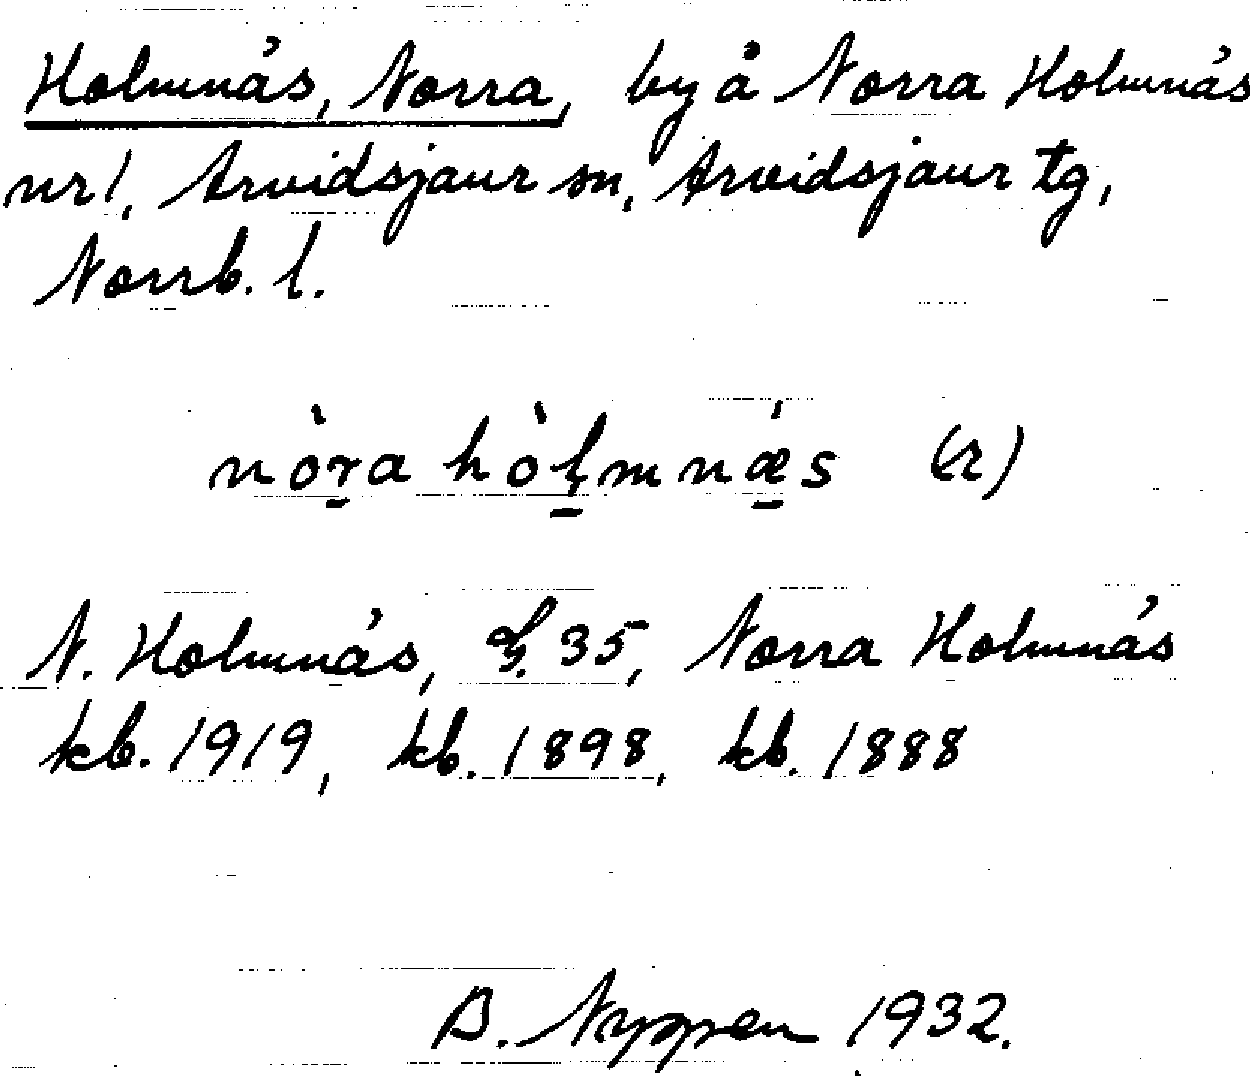 Holmnäs, Norra, by å Norra Holmnäs
nr 1, Arvidsjaur sn, Arvidsjaur tg,
Norrb. l.
nòra hòlmnæ̀s (r)
N. Holmnäs, 35, Norra Holmnäs
kb. 1919, kb. 1898, kb. 1888
B. Nyppen 1932.